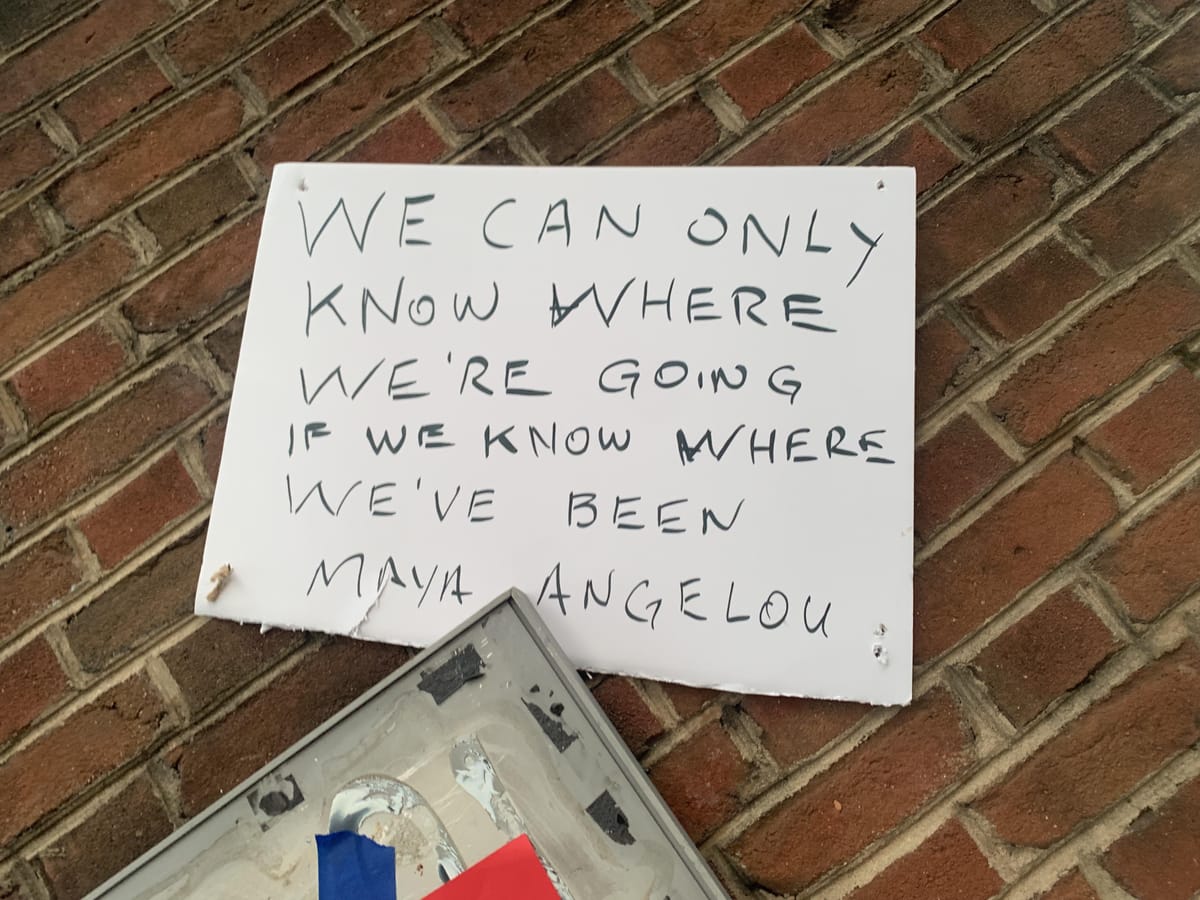 WE CAN ONLY
KNOW WHERE
WE'RE GOING
IF WE KNOW WHERE
WE'VE BEEN
MAYA ANGELOU